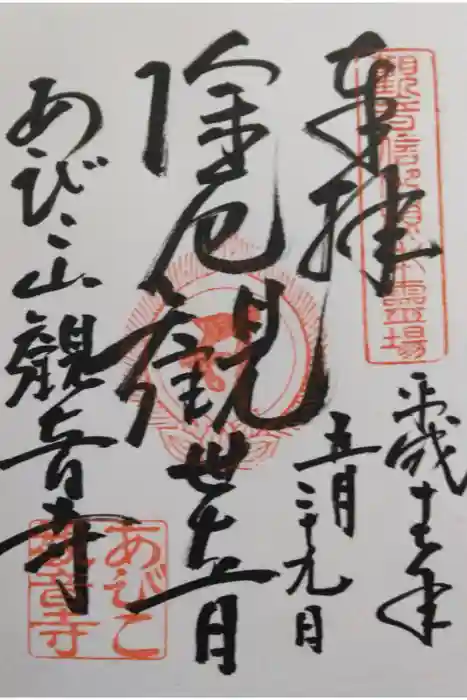 奉拝
觀音 靈場
平成十七年
五月二十九日
除厄觀世音
あびこ山観音寺
あびこ
観音寺